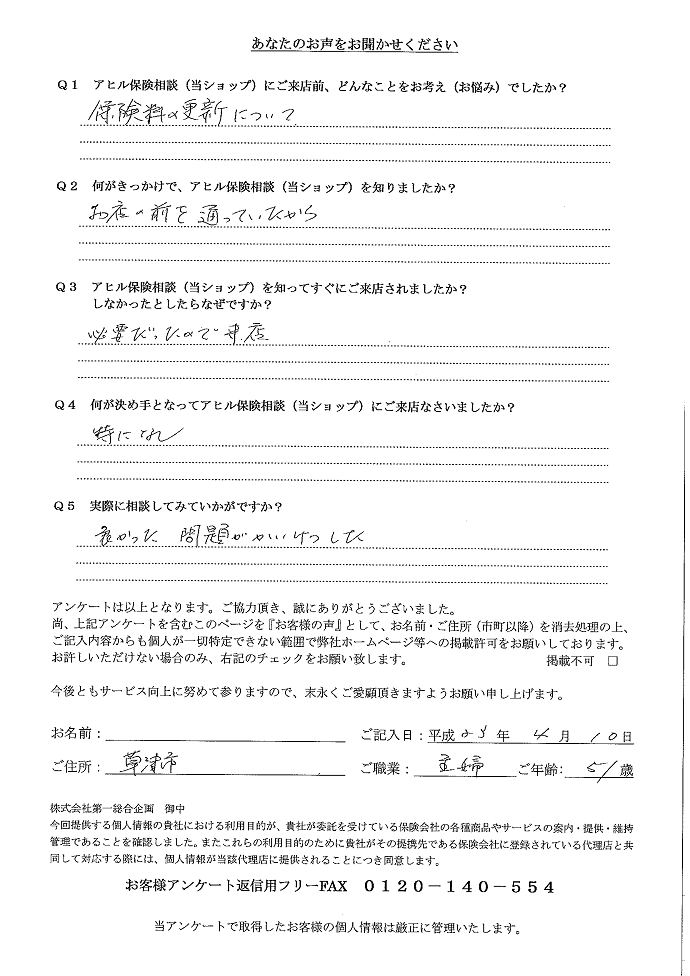 あなたのお声をお聞かせください
Q1 アヒル保険相談（当ショップ）にご来店前、どんなことをお考え（お悩み）でしたか？
保険料の更新について
Q2 何がきっかけで、アヒル保険相談（当ショップ）を知りましたか？
お店の前を通っていたから
Q3 アヒル保険相談（当ショップ）を知ってすぐにご来店されましたか？
しなかったとしたらなぜですか？
必要だったので来店
Q4 何が決め手となってアヒル保険相談（当ショップ）にご来店なさいましたか？
特になし
Q5 実際に相談してみていかがですか？
良かった 問題がかいけつした
アンケートは以上となります。ご協力頂き、誠にありがとうございました。
尚、上記アンケートを含むこのページを『お客様の声』として、お名前・ご住所（市町以降）を消去処理の上、
ご記入内容からも個人が一切特定できない範囲で弊社ホームページ等への掲載許可をお願いしております。
お許しいただけない場合のみ、右記のチェックをお願い致します。 掲載不可 □
今後ともサービス向上に努めて参りますので、末永くご愛顧頂きますようお願い申し上げます。
お名前： ご記入日：平成 年 4 月 10 日
ご住所： 草津市 ご職業： 主婦 ご年齢： 51 歳
株式会社第一総合企画 御中
今回提供する個人情報の貴社における利用目的が、貴社が委託を受けている保険会社の各種商品やサービスの案内・提供・維持
管理であることを確認しました。またこれらの利用目的のために貴社がその提携先である保険会社に登録されている代理店と共
同して対応する際には、個人情報が当該代理店に提供されることにつき同意します。
お客様アンケート返信用フリーFAX 0120－140－554
当アンケートで取得したお客様の個人情報は厳正に管理いたします。